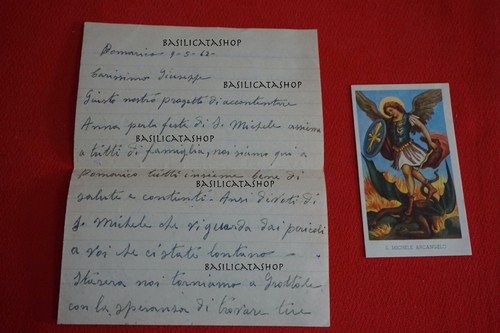 BASILICATASHOP
Pomarico 9-5-62-
Carissimo Giuseppe
BASILICATASHOP
Giusto nostro progetto di accontentare
Anna per la festa di S. Michele assieme
BASILICATASHOP
a tutti di famiglia, noi siamo qui a
Pomarico tutti insieme bene di
BASILICATASHOP
salute e contenti. Anzi divoti di
S. Michele che vi guarda dai pericoli
a voi che ci state lontano -
BASILICATASHOP
Stasera noi torniamo a Grottole
con la speranza di trovare
S. MICHELE ARCANGELO